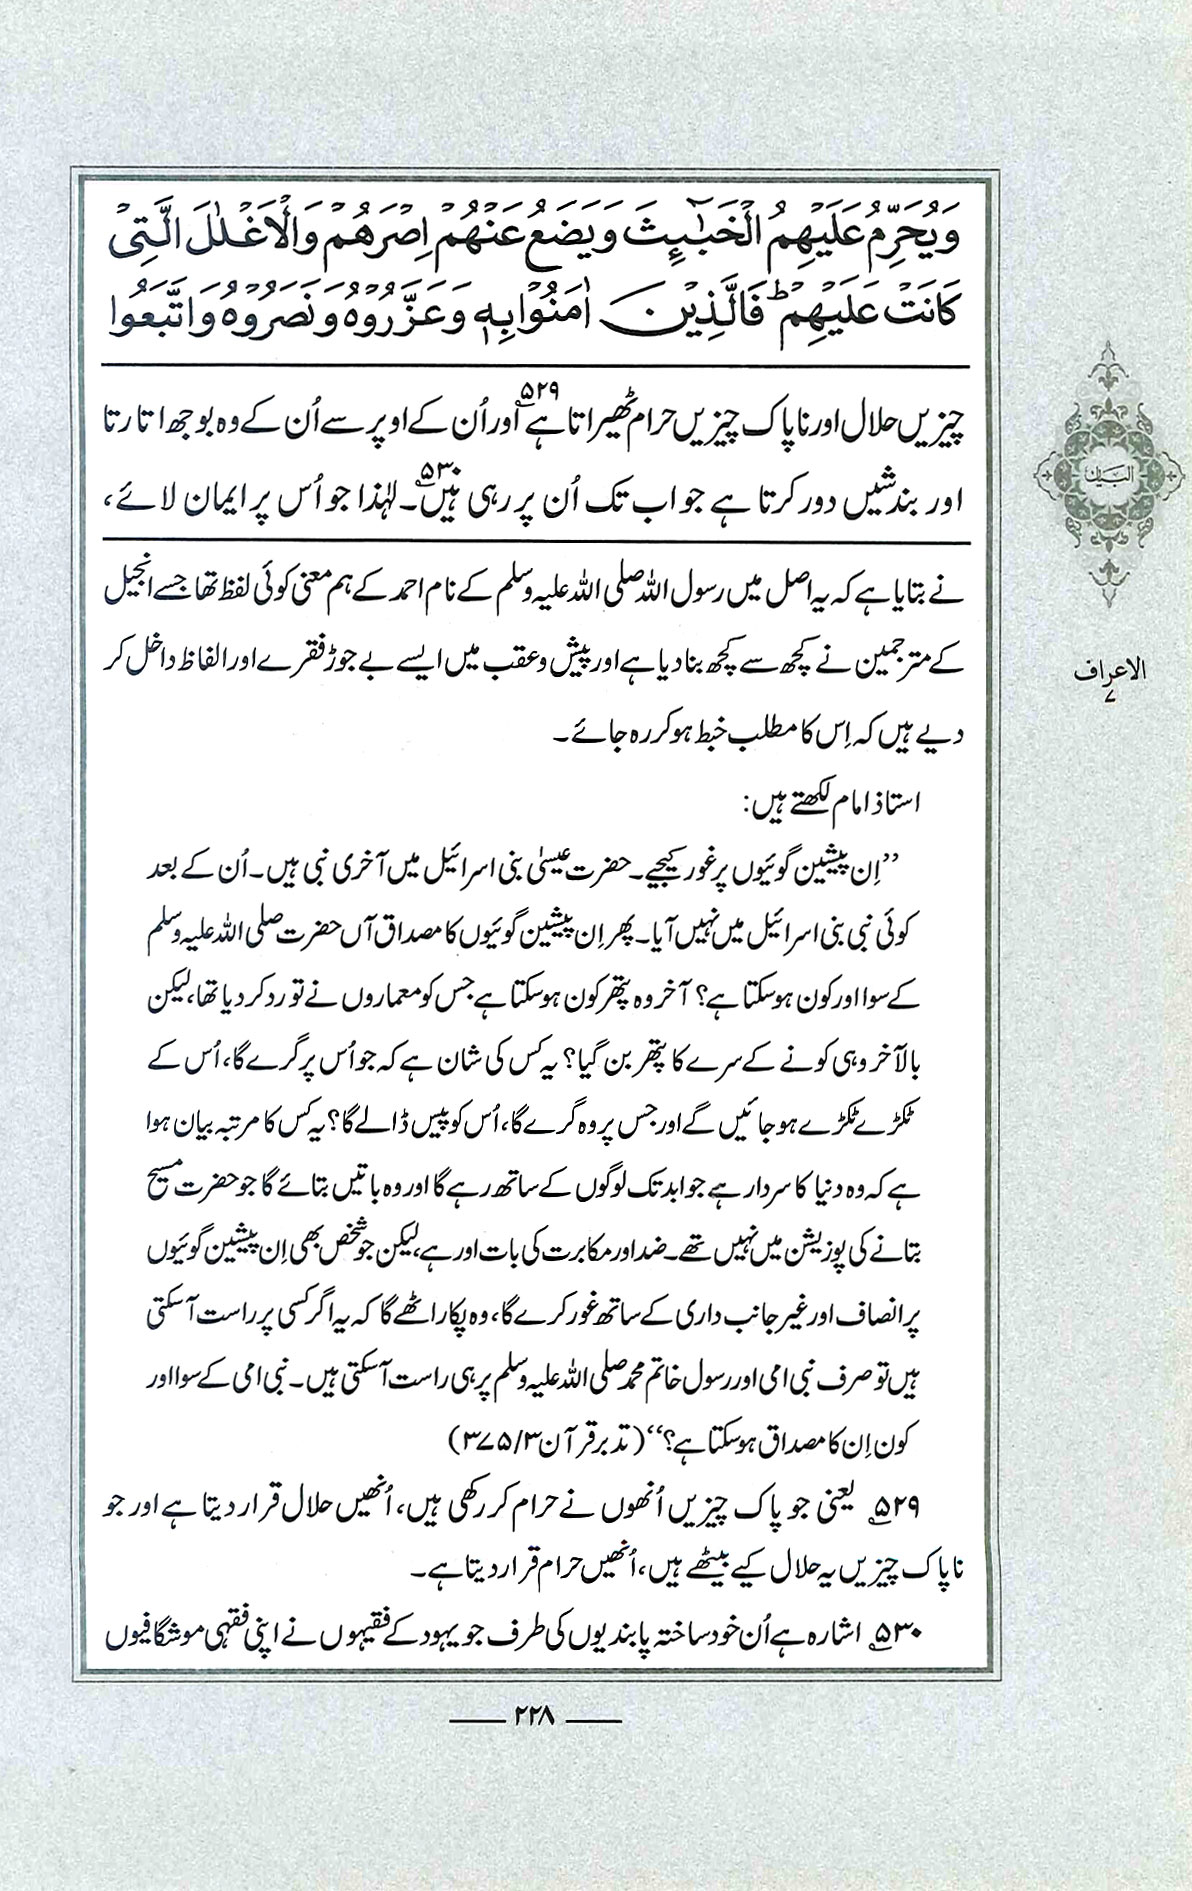 وَيُحَرِّمُ عَلَيْهِمُ الْخَبٰٓئِثَ وَيَضَعُ عَنْهُمْ اِصْرَهُمْ وَالْاَغْلٰلَ الَّتِىْ
كَانَتْ عَلَيْهِمْ ؕ فَالَّذِيْنَ اٰمَنُوْا بِهٖ وَعَزَّرُوْهُ وَنَصَرُوْهُ وَاتَّبَعُوا
چیزیں حلال اور ناپاک چیزیں حرام ٹھیراتا ہے۵۲۹ اور اُن کے اوپر سے اُن کے وہ بوجھ اتارتا
اور بندشیں دور کرتا ہے جو اب تک اُن پر رہی ہیں۵۳۰۔ لہٰذا جو اُس پر ایمان لائے،
البیان
الاعراف
۷
نے بتایا ہے کہ یہ اصل میں رسول اللہ صلی اللہ علیہ وسلم کے نام احمد کے ہم معنی کوئی لفظ تھا جسے انجیل
کے مترجمین نے کچھ سے کچھ بنا دیا ہے اور پیش و عقب میں ایسے بے جوڑ فقرے اور الفاظ داخل کر
دیے ہیں کہ اِس کا مطلب خبط ہو کر رہ جائے۔
استاذ امام لکھتے ہیں:
’’اِن پیشین گوئیوں پر غور کیجیے۔ حضرت عیسیٰ بنی اسرائیل میں آخری نبی ہیں۔ اُن کے بعد
کوئی نبی بنی اسرائیل میں نہیں آیا۔ پھر اِن پیشین گوئیوں کا مصداق آں حضرت صلی اللہ علیہ وسلم
کے سوا اور کون ہو سکتا ہے؟ آخر وہ پتھر کون ہو سکتا ہے جس کو معماروں نے تو رد کر دیا تھا، لیکن
بالآخر وہی کونے کے سرے کا پتھر بن گیا؟ یہ کس کی شان ہے کہ جو اُس پر گرے گا، اُس کے
ٹکڑے ٹکڑے ہو جائیں گے اور جس پر وہ گرے گا، اُس کو پیس ڈالے گا؟ یہ کس کا مرتبہ بیان ہوا
ہے کہ وہ دنیا کا سردار ہے جو ابد تک لوگوں کے ساتھ رہے گا اور وہ باتیں بتائے گا جو حضرت مسیح
بتانے کی پوزیشن میں نہیں تھے۔ ضد اور مکابرت کی بات اور ہے، لیکن جو شخص بھی اِن پیشین گوئیوں
پر انصاف اور غیر جانب داری کے ساتھ غور کرے گا، وہ پکار اٹھے گا کہ یہ اگر کسی پر راست آ سکتی
ہیں تو صرف نبی امی اور رسول خاتم محمد صلی اللہ علیہ وسلم پر ہی راست آ سکتی ہیں۔ نبی امی کے سوا اور
کون اِن کا مصداق ہو سکتا ہے؟‘‘ (تدبر قرآن ۳/ ۳۷۵)
۵۲۹ یعنی جو پاک چیزیں اُنھوں نے حرام کر رکھی ہیں، اُنھیں حلال قرار دیتا ہے اور جو
ناپاک چیزیں یہ حلال کیے بیٹھے ہیں، اُنھیں حرام قرار دیتا ہے۔
۵۳۰ اشارہ ہے اُن خود ساختہ پابندیوں کی طرف جو یہود کے فقیہوں نے اپنی فقہی موشگافیوں
۲۲۸